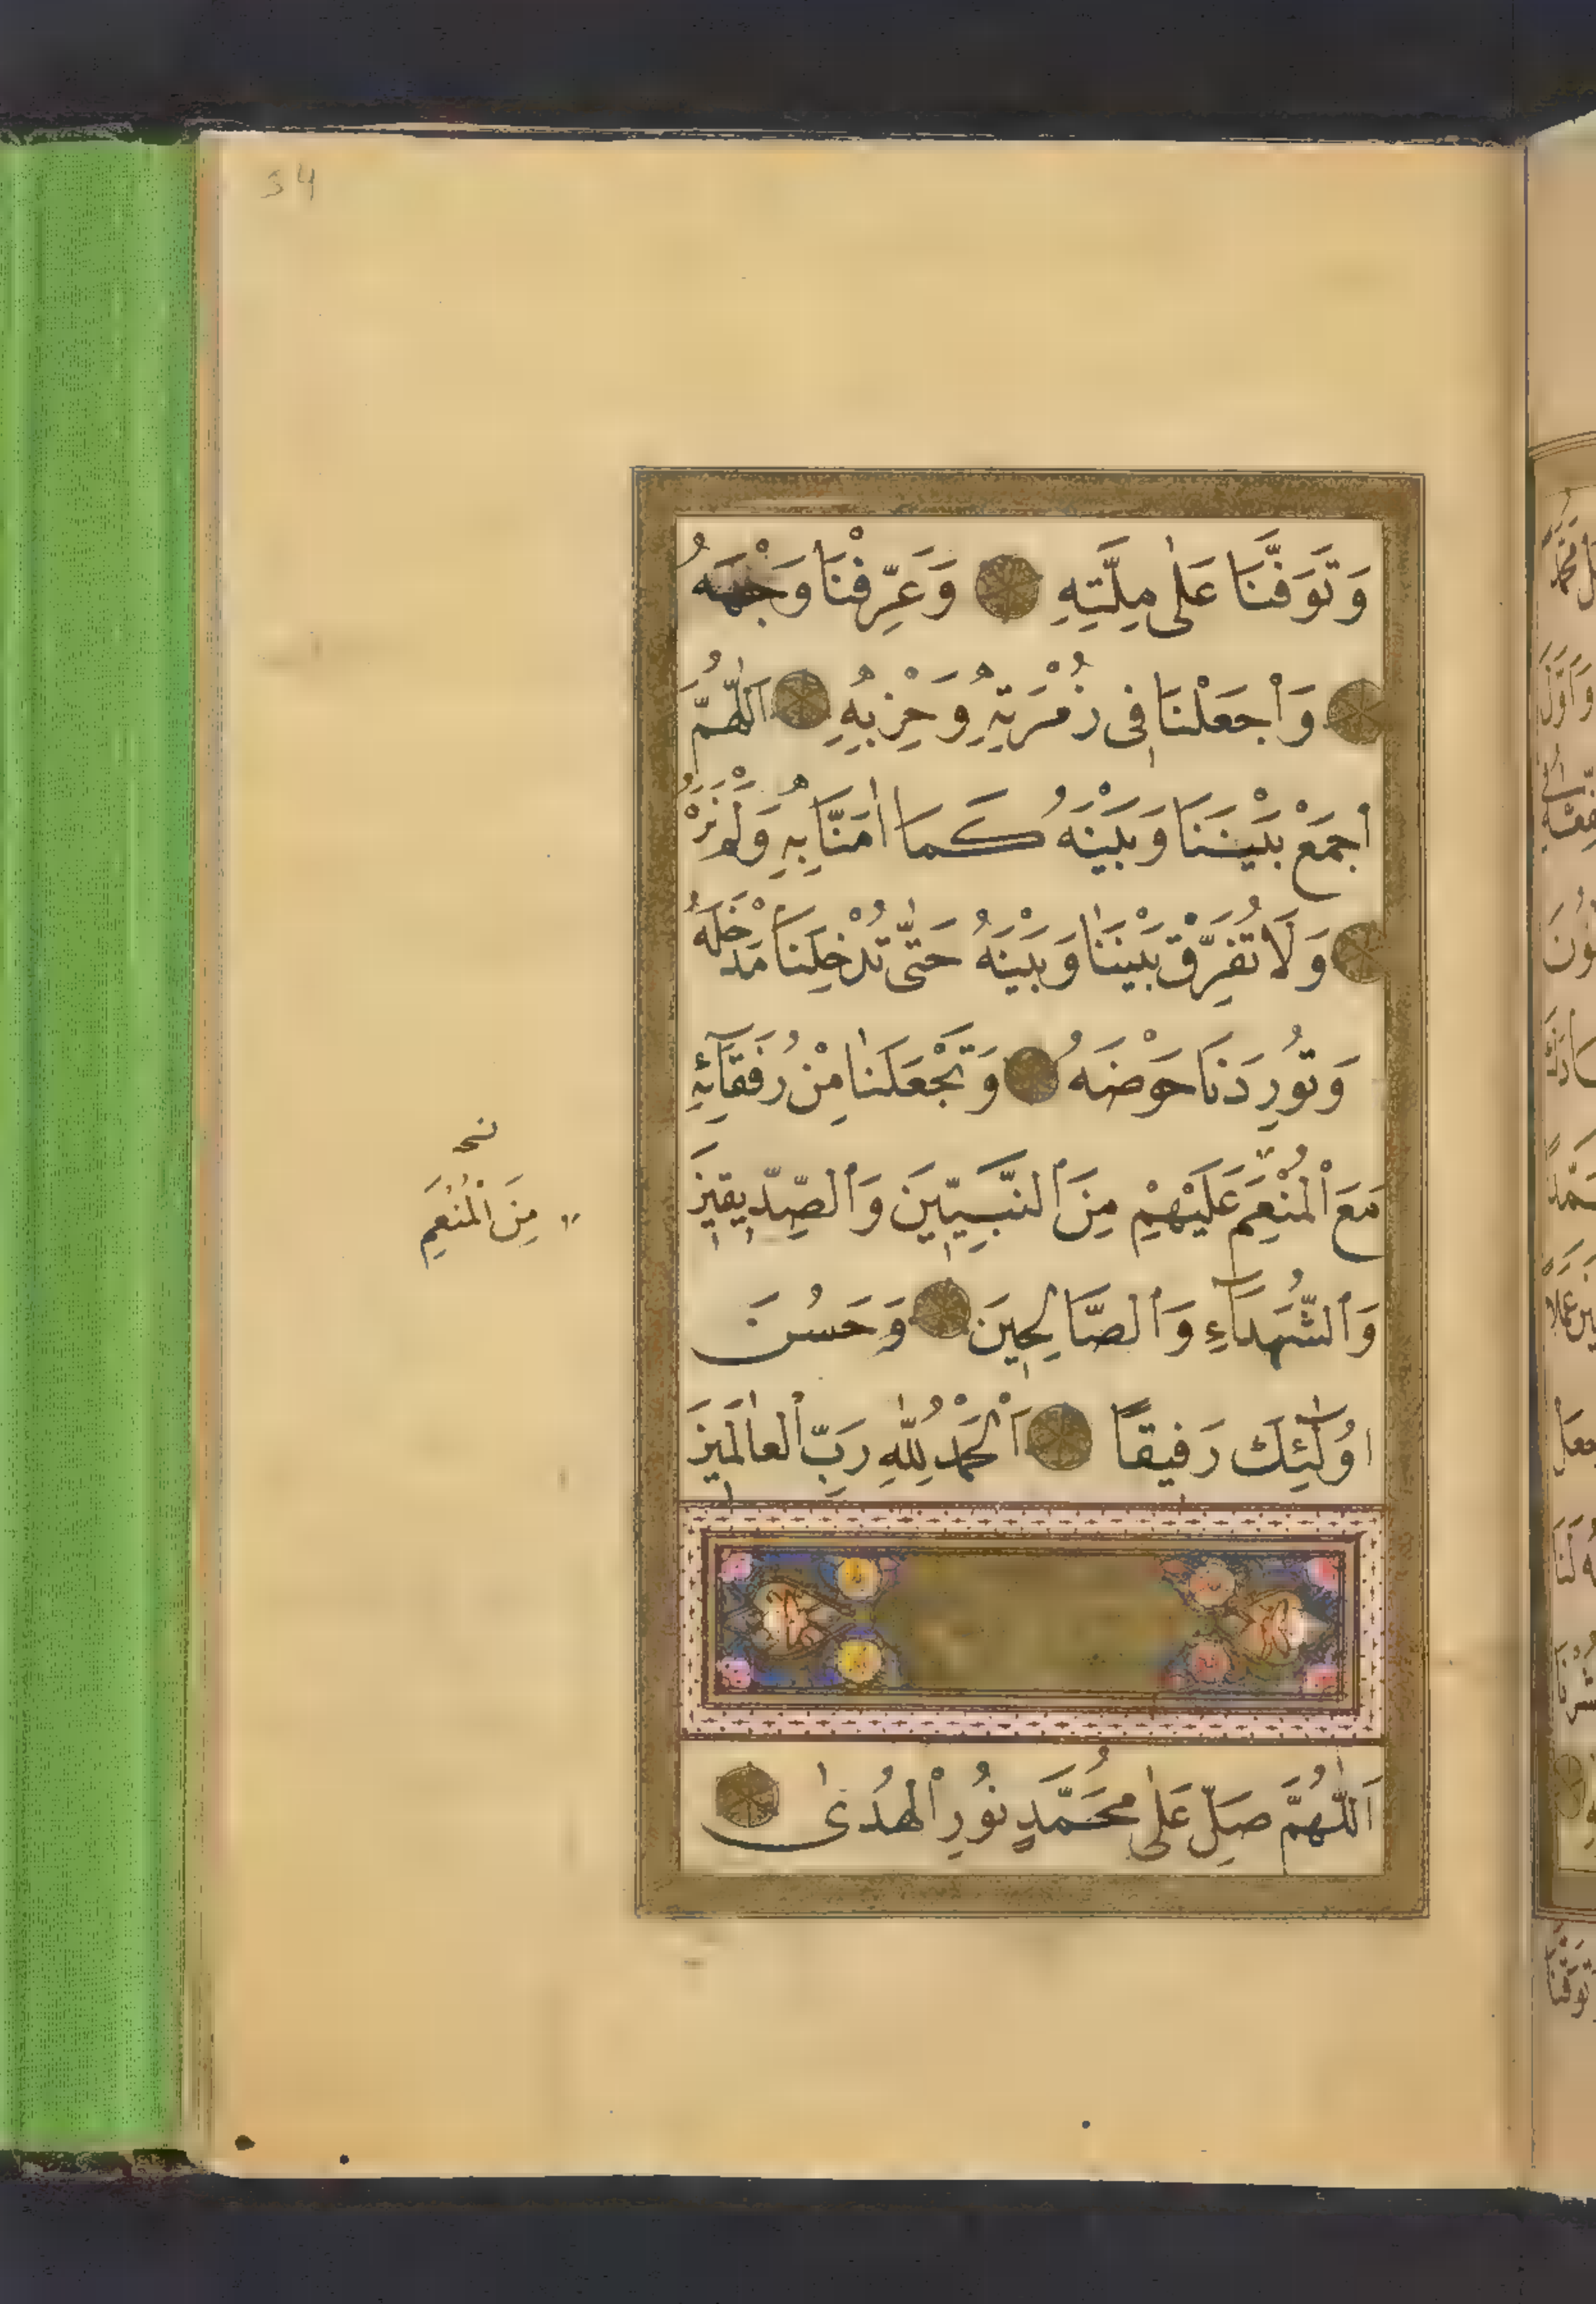 34
وَتَوَفَّنَا عَلٰى مِلَّتِهِ وَعَرِّفْنَا وَجْهَهُ
وَاجْعَلْنَا فِى زُمْرَتِهِ وَحِزْبِهِ اَللّٰهُمَّ
اجْمَعْ بَيْنَنَا وَبَيْنَهُ كَمَا اٰمَنَّا بِهِ وَلَمْ نَرَهُ
وَلَا تُفَرِّقْ بَيْنَنَا وَبَيْنَهُ حَتّٰى تُدْخِلَنَا مَدْخَلَهُ
وَتُورِدَنَا حَوْضَهُ وَتَجْعَلَنَا مِنْ رُفَقَآئِهِ
مَعَ الْمُنْعَمِ عَلَيْهِمْ مِنَ النَّبِيّٖينَ وَالصِّدّٖيقٖينَ
وَالشُّهَدَآءِ وَالصَّالِحٖينَ وَحَسُنَ
اُولٰٓئِكَ رَفيقًا اَلْحَمْدُ لِلّٰهِ رَبِّ الْعَالَمٖينَ
اَللّٰهُمَّ صَلِّ عَلٰى مُحَمَّدٍ نُورِ الْهُدٰى
مِنَ الْمُنْعَمِ